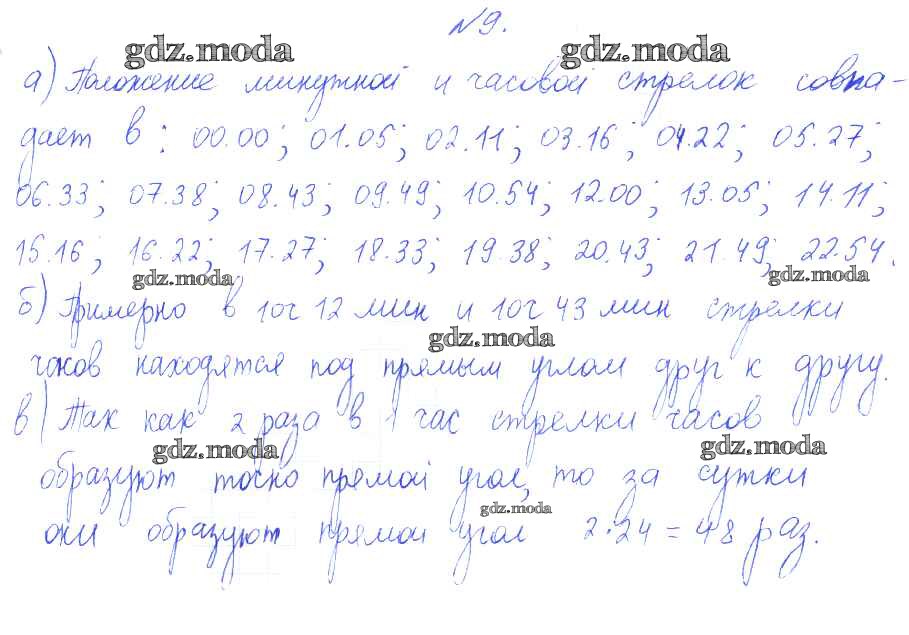 №9.
gdz.moda gdz.moda
а) Положение минутной и часовой стрелок совпа-
дает в: 00.00; 01.05; 02.11; 03.16; 04.22; 05.27;
06.33; 07.38; 08.43; 09.49; 10.54; 12.00; 13.05; 14.11;
15.16; 16.22; 17.27; 18.33; 19.38; 20.43; 21.49; 22.54.
gdz.moda gdz.moda
б) Примерно в 10ч 12 мин и 10ч 43 мин стрелки
gdz.moda
часов находятся под прямым углом друг к другу.
в) Так как 2 раза в 1 час стрелки часов
gdz.moda gdz.moda
образуют точно прямой угол, то за сутки
gdz.moda
они образуют прямой угол 2·24 = 48 раз.